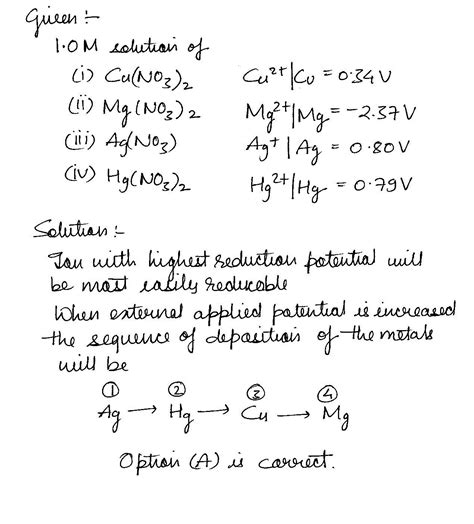 Given :-
1.0 M solution of
(i) Cu(NO₃)₂ Cu²⁺|Cu = 0.34 V
(ii) Mg(NO₃)₂ Mg²⁺|Mg = -2.37 V
(iii) Ag(NO₃) Ag⁺|Ag = 0.80 V
(iv) Hg(NO₃)₂ Hg²⁺|Hg = 0.79 V
Solution :-
Ion with highest reduction potential will
be most easily reducable
When external applied potential is increased
the sequence of deposition of the metals
will be
① ② ③ ④
Ag → Hg → Cu → Mg
Option (A) is correct.